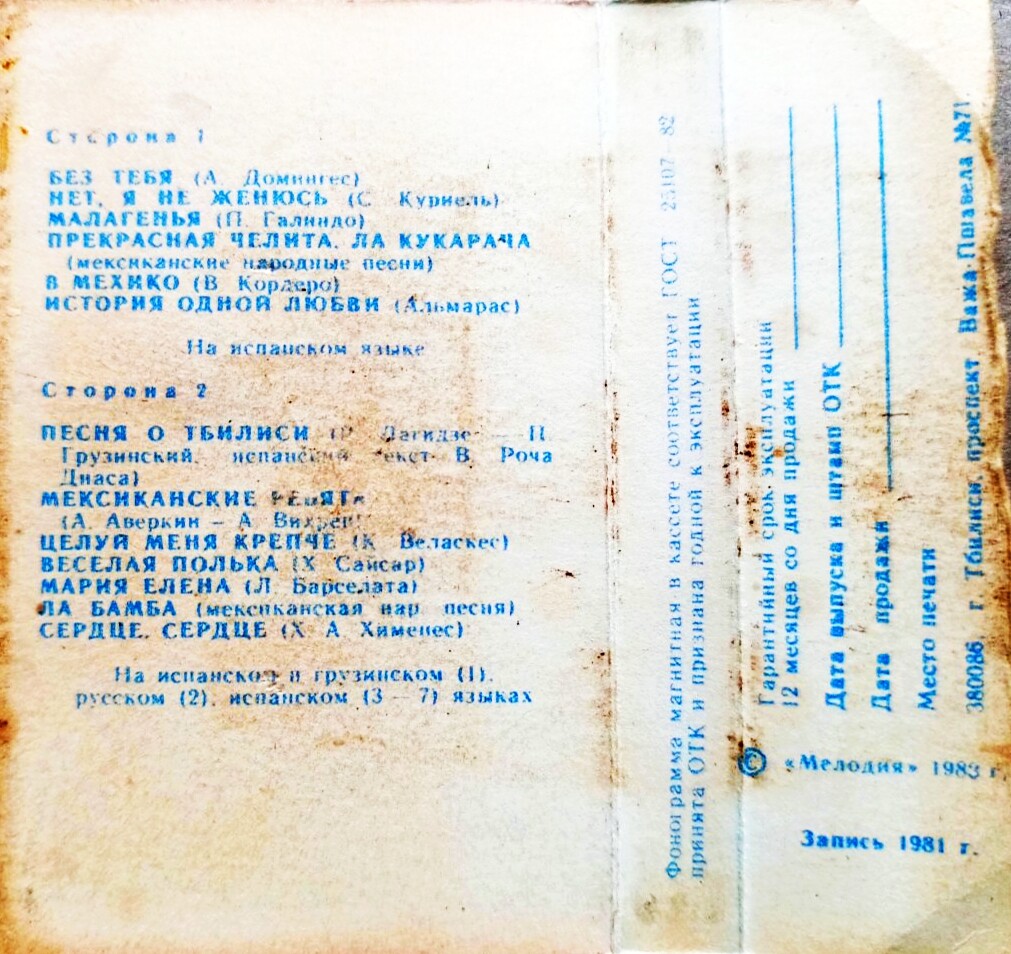 Сторона 1
БЕЗ ТЕБЯ (А. Домингес)
НЕТ, Я НЕ ЖЕНЮСЬ (С. Куриель)
МАЛАГЕНЬЯ (П. Галиндо)
ПРЕКРАСНАЯ ЧЕЛИТА, ЛА КУКАРАЧА
(мексиканские народные песни)
В МЕХИКО (В. Кордеро)
ИСТОРИЯ ОДНОЙ ЛЮБВИ (Альмарас)
На испанском языке
Сторона 2
ПЕСНЯ О ТБИЛИСИ (Р. Лагидзе — П.
Грузинский, испанский текст В. Роча
Диаса)
МЕКСИКАНСКИЕ РЕБЯТА
(А. Аверкин — А. Вихрев)
ЦЕЛУЙ МЕНЯ КРЕПЧЕ (К. Веласкес)
ВЕСЕЛАЯ ПОЛЬКА (Х. Сайсар)
МАРИЯ ЕЛЕНА (Л. Барселата)
ЛА БАМБА (мексиканская нар. песня)
СЕРДЦЕ, СЕРДЦЕ (Х. А. Хименес)
На испанском и грузинском (1),
русском (2), испанском (3 — 7) языках
Фонограмма магнитная в кассете соответствует ГОСТ 25107—82
принята ОТК и признана годной к эксплуатации
Гарантийный срок эксплуатации
12 месяцев со дня продажи
Дата выпуска и штамп ОТК
Дата продажи
Место печати
380086, г. Тбилиси, проспект Важа-Пшавела №71.
© «Мелодия» 1983 г.
Запись 1981 г.